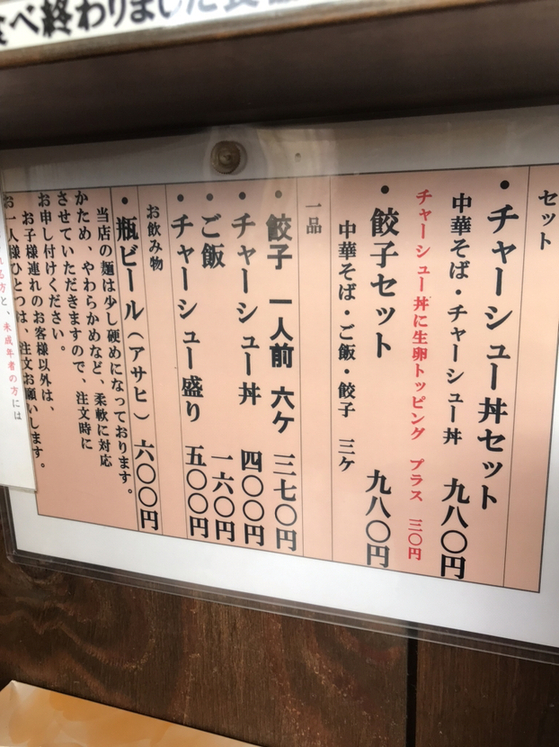 食べ終わりました
セット
・チャーシュー丼セット
中華そば・チャーシュー丼 九八〇円
チャーシュー丼に生卵トッピング プラス 三〇円
・餃子セット
中華そば・ご飯・餃子 三ケ 九八〇円
一品
・餃子 一人前 六ケ 三七〇円
・チャーシュー丼 四〇〇円
・ご飯 一六〇円
・チャーシュー盛り 五〇〇円
お飲み物
・瓶ビール(アサヒ) 六〇〇円
当店の麺は少し硬めになっております。
かため、やわらかめなど、柔軟に対応
させていただきますので、注文時に
お申し付けください。
お子様連れのお客様以外は、
お一人様ひとつは、注文お願いします。
る方と、未成年者の方には